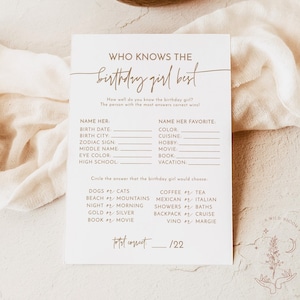 WHO KNOWS THE
birthday girl best
How well do you know the birthday girl?
The person with the most answers correct wins!
NAME HER:
BIRTH DATE:
BIRTH CITY:
ZODIAC SIGN:
MIDDLE NAME:
EYE COLOR:
HIGH SCHOOL:
NAME HER FAVORITE:
COLOR:
CUISINE:
HOBBY:
MOVIE:
BOOK:
VACATION:
Circle the answer that the birthday girl would choose.
DOGS or CATS
BEACH or MOUNTAINS
NIGHT or MORNING
GOLD or SILVER
BOOK or MOVIE
COFFEE or TEA
MEXICAN or ITALIAN
SHOWERS or BATHS
BACKPACK or CRUISE
VINO or MARGIE
total correct ____ /22